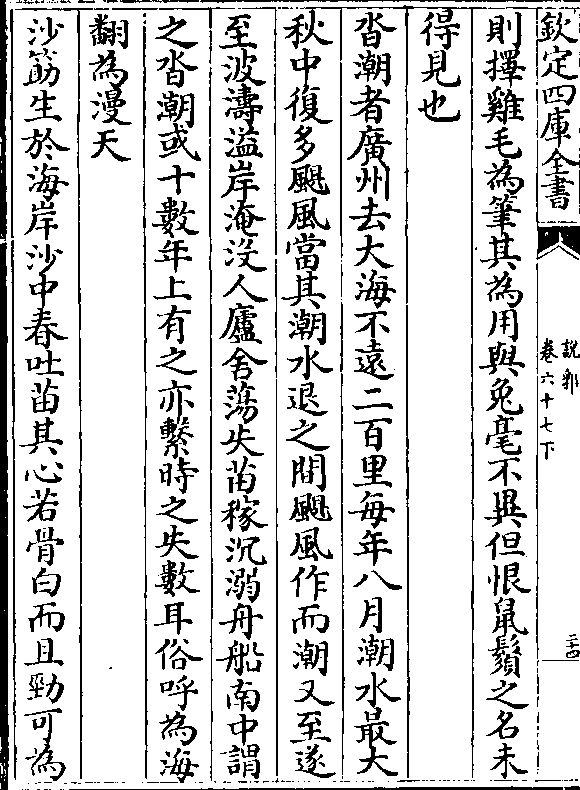 欽定四庫全書
說郛
卷六十七下
二十四
則擇雞毛為筆其為用與兔毫不異但恨鼠鬚之名未
得見也
沓潮者廣州去大海不遠二百里每年八月潮水最大
秋中復多颶風當其潮水退之間颶風作而潮又至遂
至波濤溢岸淹沒人廬舍蕩失苗稼沉溺舟船南中謂
之沓潮或十數年上有之亦繫時之失數耳俗呼為海
翻為漫天
沙筯生於海岸沙中春吐苗其心若骨白而且勁可為